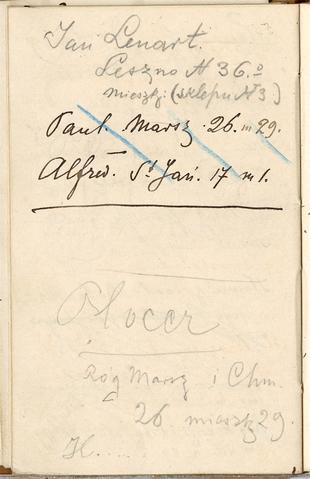 Jan Lenart.
Leszno N 36.º
mieszk: (sklepu N 3)
Paul. Marsz. 26. m 29.
Alfred. Sᵗ Jań. 17 m 1.
Plocer
Róg Marsz i Chm.
26 mieszk 29.
H.....